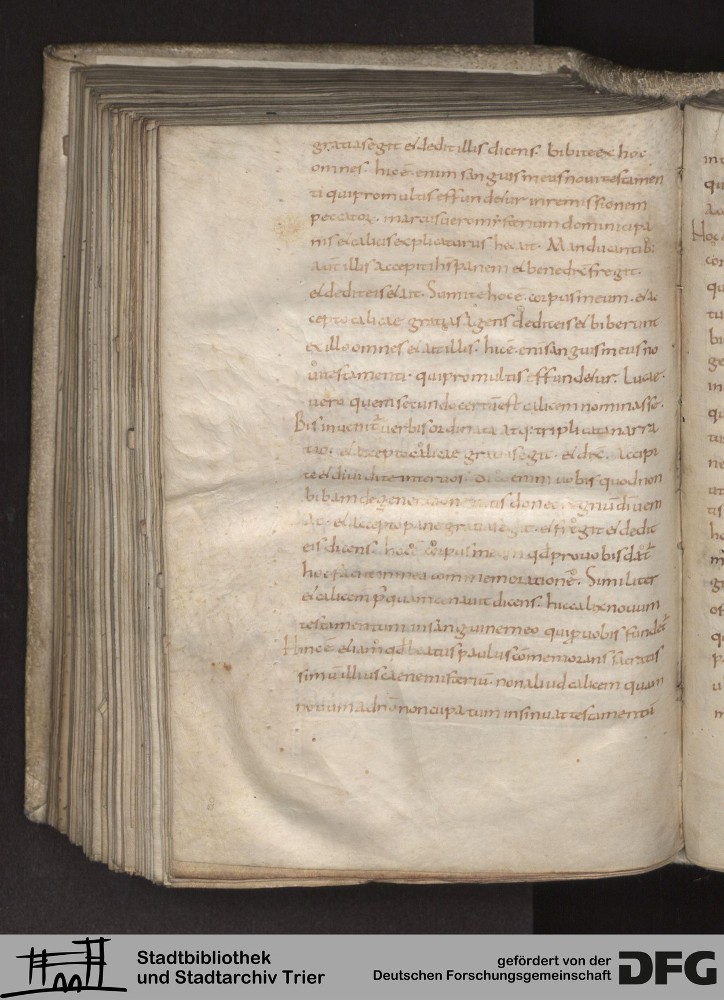 gratias egit et dedit illis dicens. bibite ex hoc
omnes. hic ē. enim sanguis meus noui testamen
ti qui pro multis effundetur in remissionem
peccator. marcus uero mysterium dominici pa
nis et calicis explicaturus hec ait. Manducantib:
aut illis accepit ihs panem et benedic fregit.
et dedit eis et ait. Sumite hoc ē. corpus meum. et ac
cepto calicae gratias agens dedit eis et biberunt
ex illo omnes et ait illis. hic ē. eni sanguis meus no
ui testamenti. qui pro multis effundetur. Lucae.
uero quem secundo certū est calicem nominasse.
Bis inuenit uerbis ordinata atq: triplicata narra
tio. et accepto calicae gratias egit. et dix. accipi
te et diuidite inter uos. dico enim uobis quod non
bibam de generatione uitis donec regnū dī ueni
at. et accepto pane gratias egit. et fregit et dedit
eis dicens. hoc ē. corpus meum qd pro uobis dat
hoc facite in mea commemoratione. Similiter
et calicem p quam cenauit dicens. hic calix nouum
testamentum in sanguine meo qui p uobis fundet
Hinc ē. etiam qd beatus paulus comemorans sacratis
simū illius caene misteriū. non aliud calicem quam
nouum a dno noncupatum insinuat testamentū
Stadtbibliothek
und Stadtarchiv Trier
gefördert von der
Deutschen Forschungsgemeinschaft
DFG